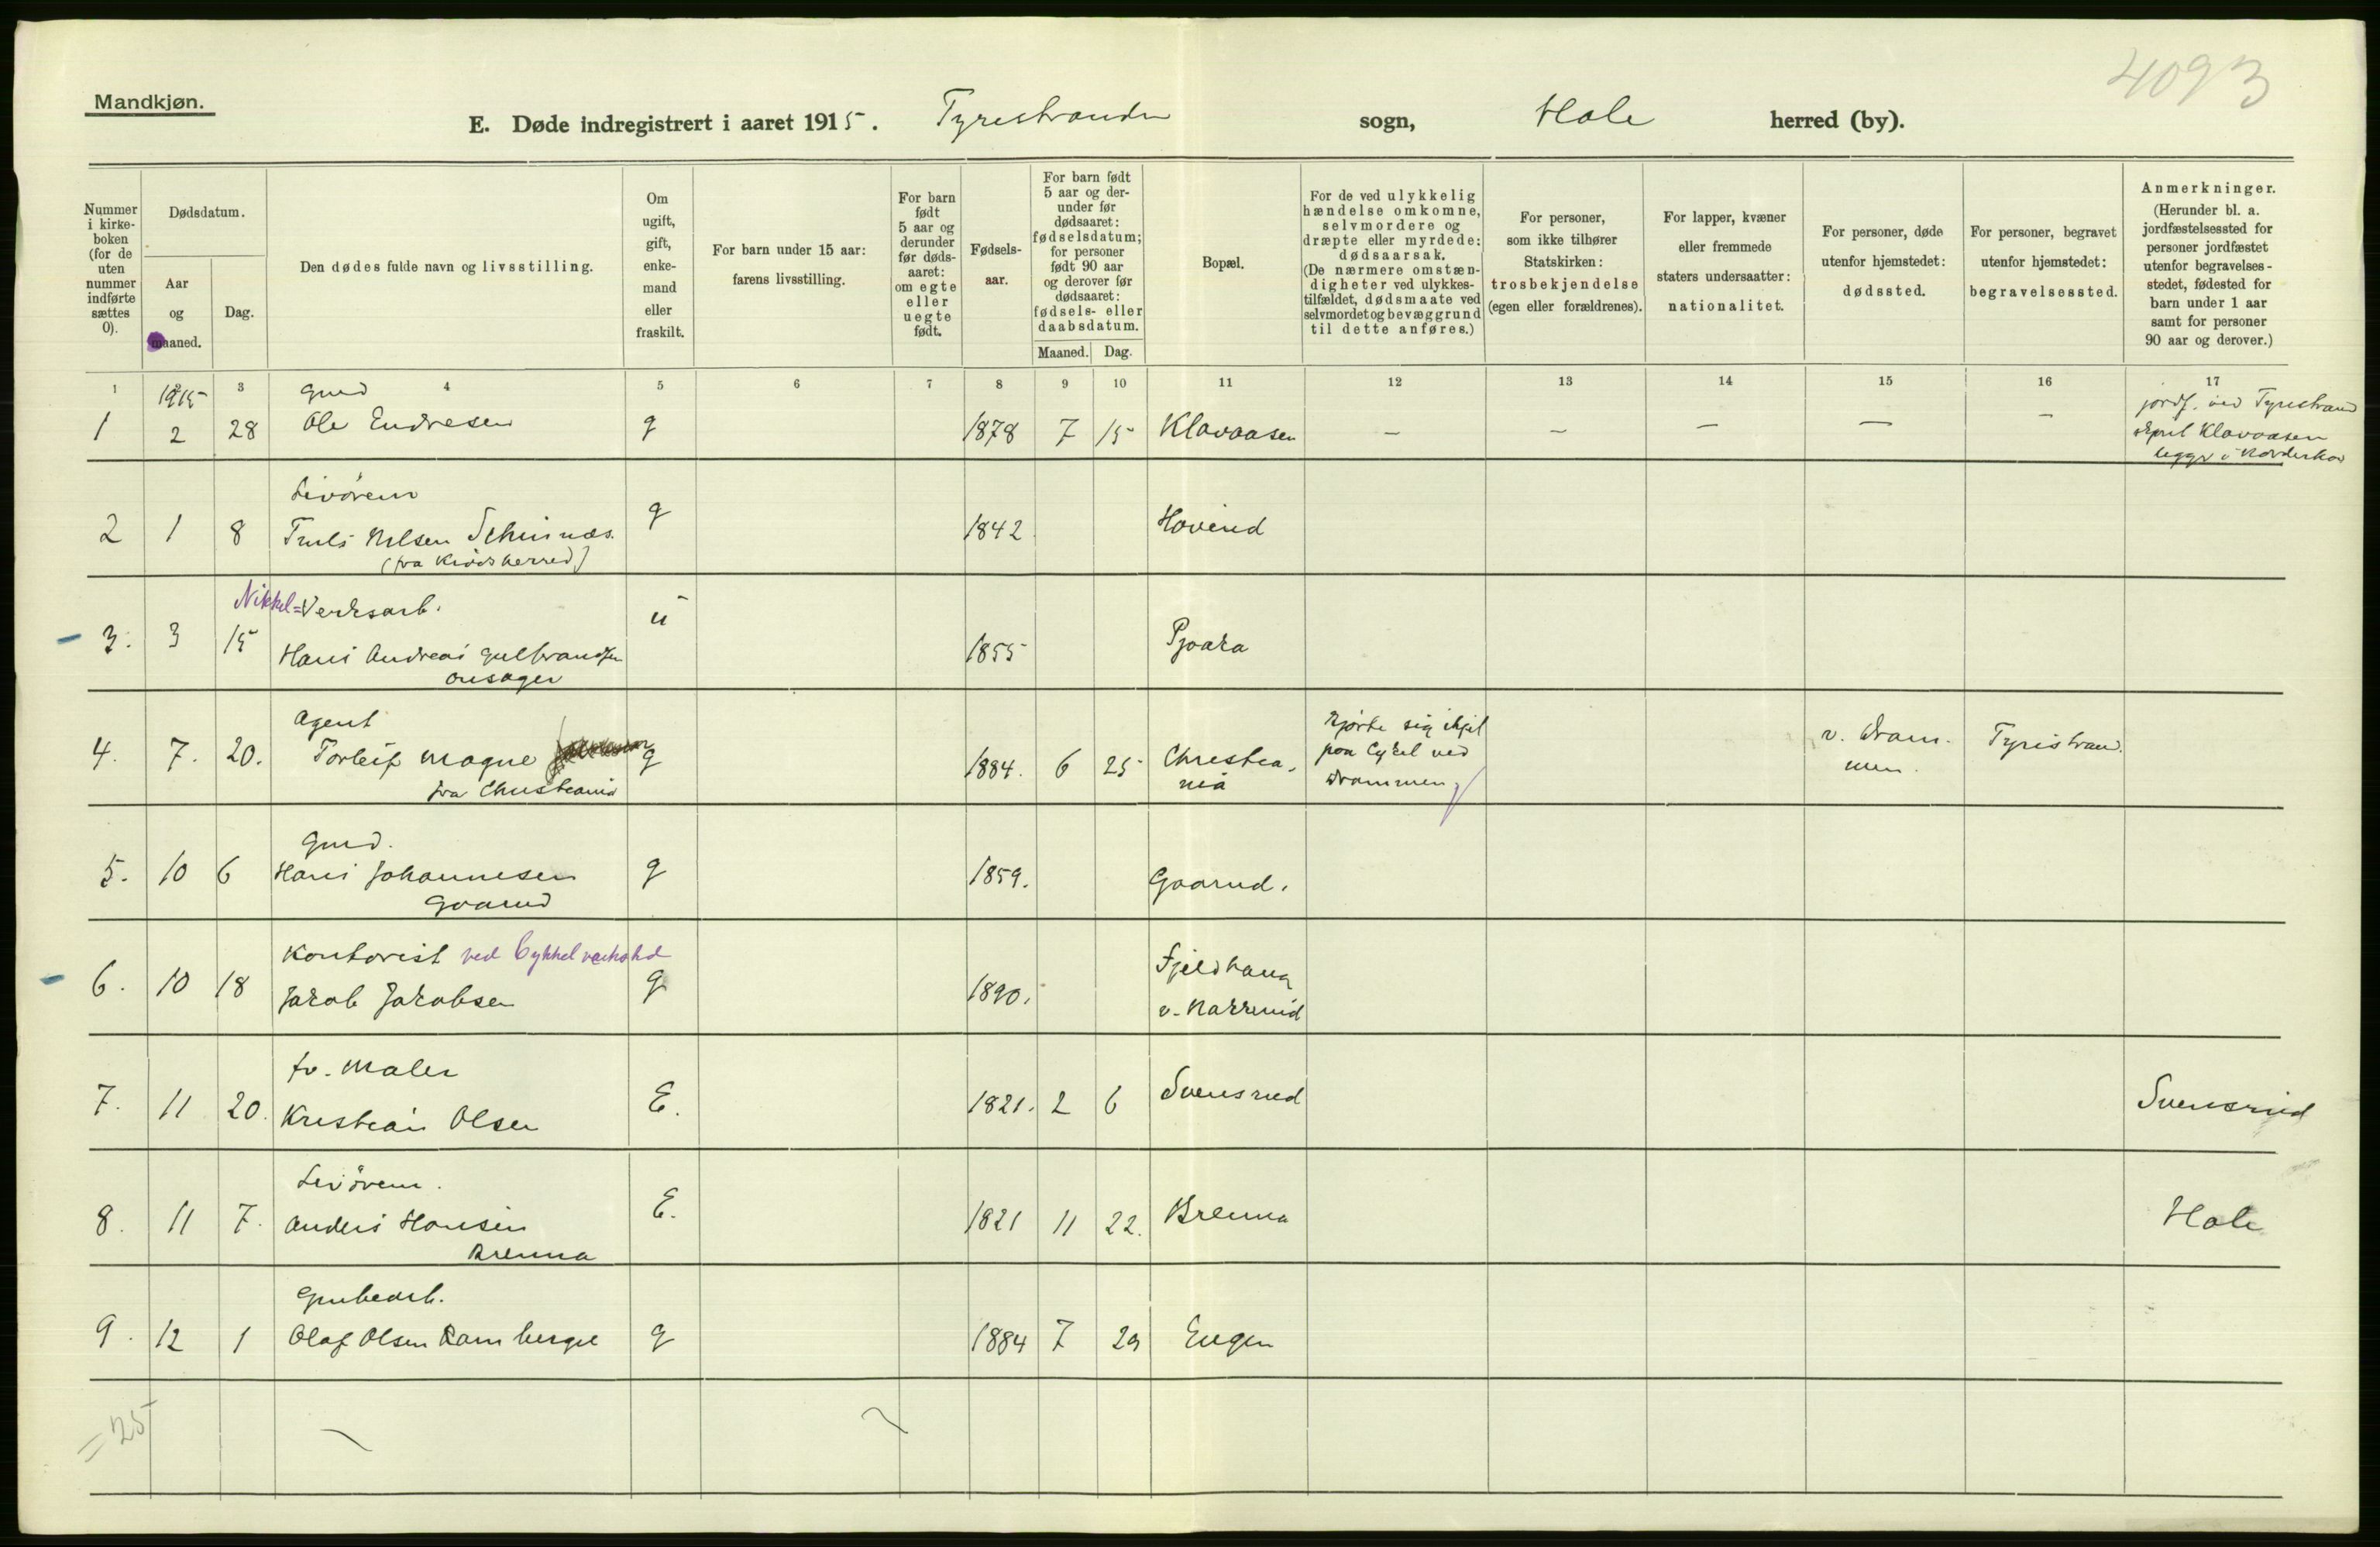 4093
Mandkjøn.
E. Døde indregistrert i aaret 1915. Tyristranden sogn, Hole herred (by).
Nummer i kirke-boken (for de uten nummer indførte sættes 0).
Dødsdatum.
Aar og maaned.
Dag.
Den dødes fulde navn og livsstilling.
Om ugift, gift, enke-mand eller fraskilt.
For barn under 15 aar: farens livsstilling.
For barn født 5 aar og derunder før døds-aaret: om egte eller uegte født.
Fødsels-aar.
For barn født 5 aar og der-under før dødsaaret: fødselsdatum; for personer født 90 aar og derover før dødsaaret: fødsels- eller daabsdatum.
Maaned. Dag.
Bopæl.
For de ved ulykkelig hændelse omkomne, selvmordere og dræpte eller myrdede: dødsaarsak. (De nærmere omstæn-digheter ved ulykkes-tilfældet, dødsmaate ved selvmordet og bevæggrund til dette anføres.)
For personer, som ikke tilhører Statskirken: trosbekjendelse (egen eller forældrenes).
For lapper, kvæner eller fremmede staters undersaatter: nationalitet.
For personer, døde utenfor hjemstedet: dødssted.
For personer, begravet utenfor hjemstedet: begravelsessted.
Anmerkninger. (Herunder bl. a. jordfæstelsessted for personer jordfæstet utenfor begravelses-stedet, fødested for barn under 1 aar samt for personer 90 aar og derover.)
1 2 3 4 5 6 7 8 9 10 11 12 13 14 15 16 17
1915
Gmd
1 2 28 Ole Endresen g 1878 7 15 Klovaasen – – – – –
jordf. ved Tyristrand
Klovaasen
ligger i Norderhov
Livørem
2 1 8 Truls Nilsen g 1842 Hovind
(fra Krødsherred)
Nikkel=Verksarb.
3. 3 15 Hans Andreas Gulbrandsen u 1855 Pjaaka
Onsager
Agent
4. 7. 20. Torleif Magne g 1884. 6 25 Christia-
nia
fra Christiania
kjørte sig ihjel
paa Cykel ved
Drammen
v. Dram-
men.
Tyristrand.
Gmd.
5. 10 6 Hans Johannesen g 1859. Gaarud.
Gaarud
Kontorist ved Cykkelverksted
6. 10 18 Jakob Jakobsen g 1890. Fjeldhaug
v. Nakkerud
fv. Maler
7. 11 20. Kristian Olsen E. 1821. 2 6 Svensrud Svensrud
Livørem.
8. 11 7. Anders Hansen E. 1821 11 22. Brenna Hole
Brenna
Grubearb.
9. 12 1 Olaf Olsen Ramberget g 1884 7 29 Engen
=25